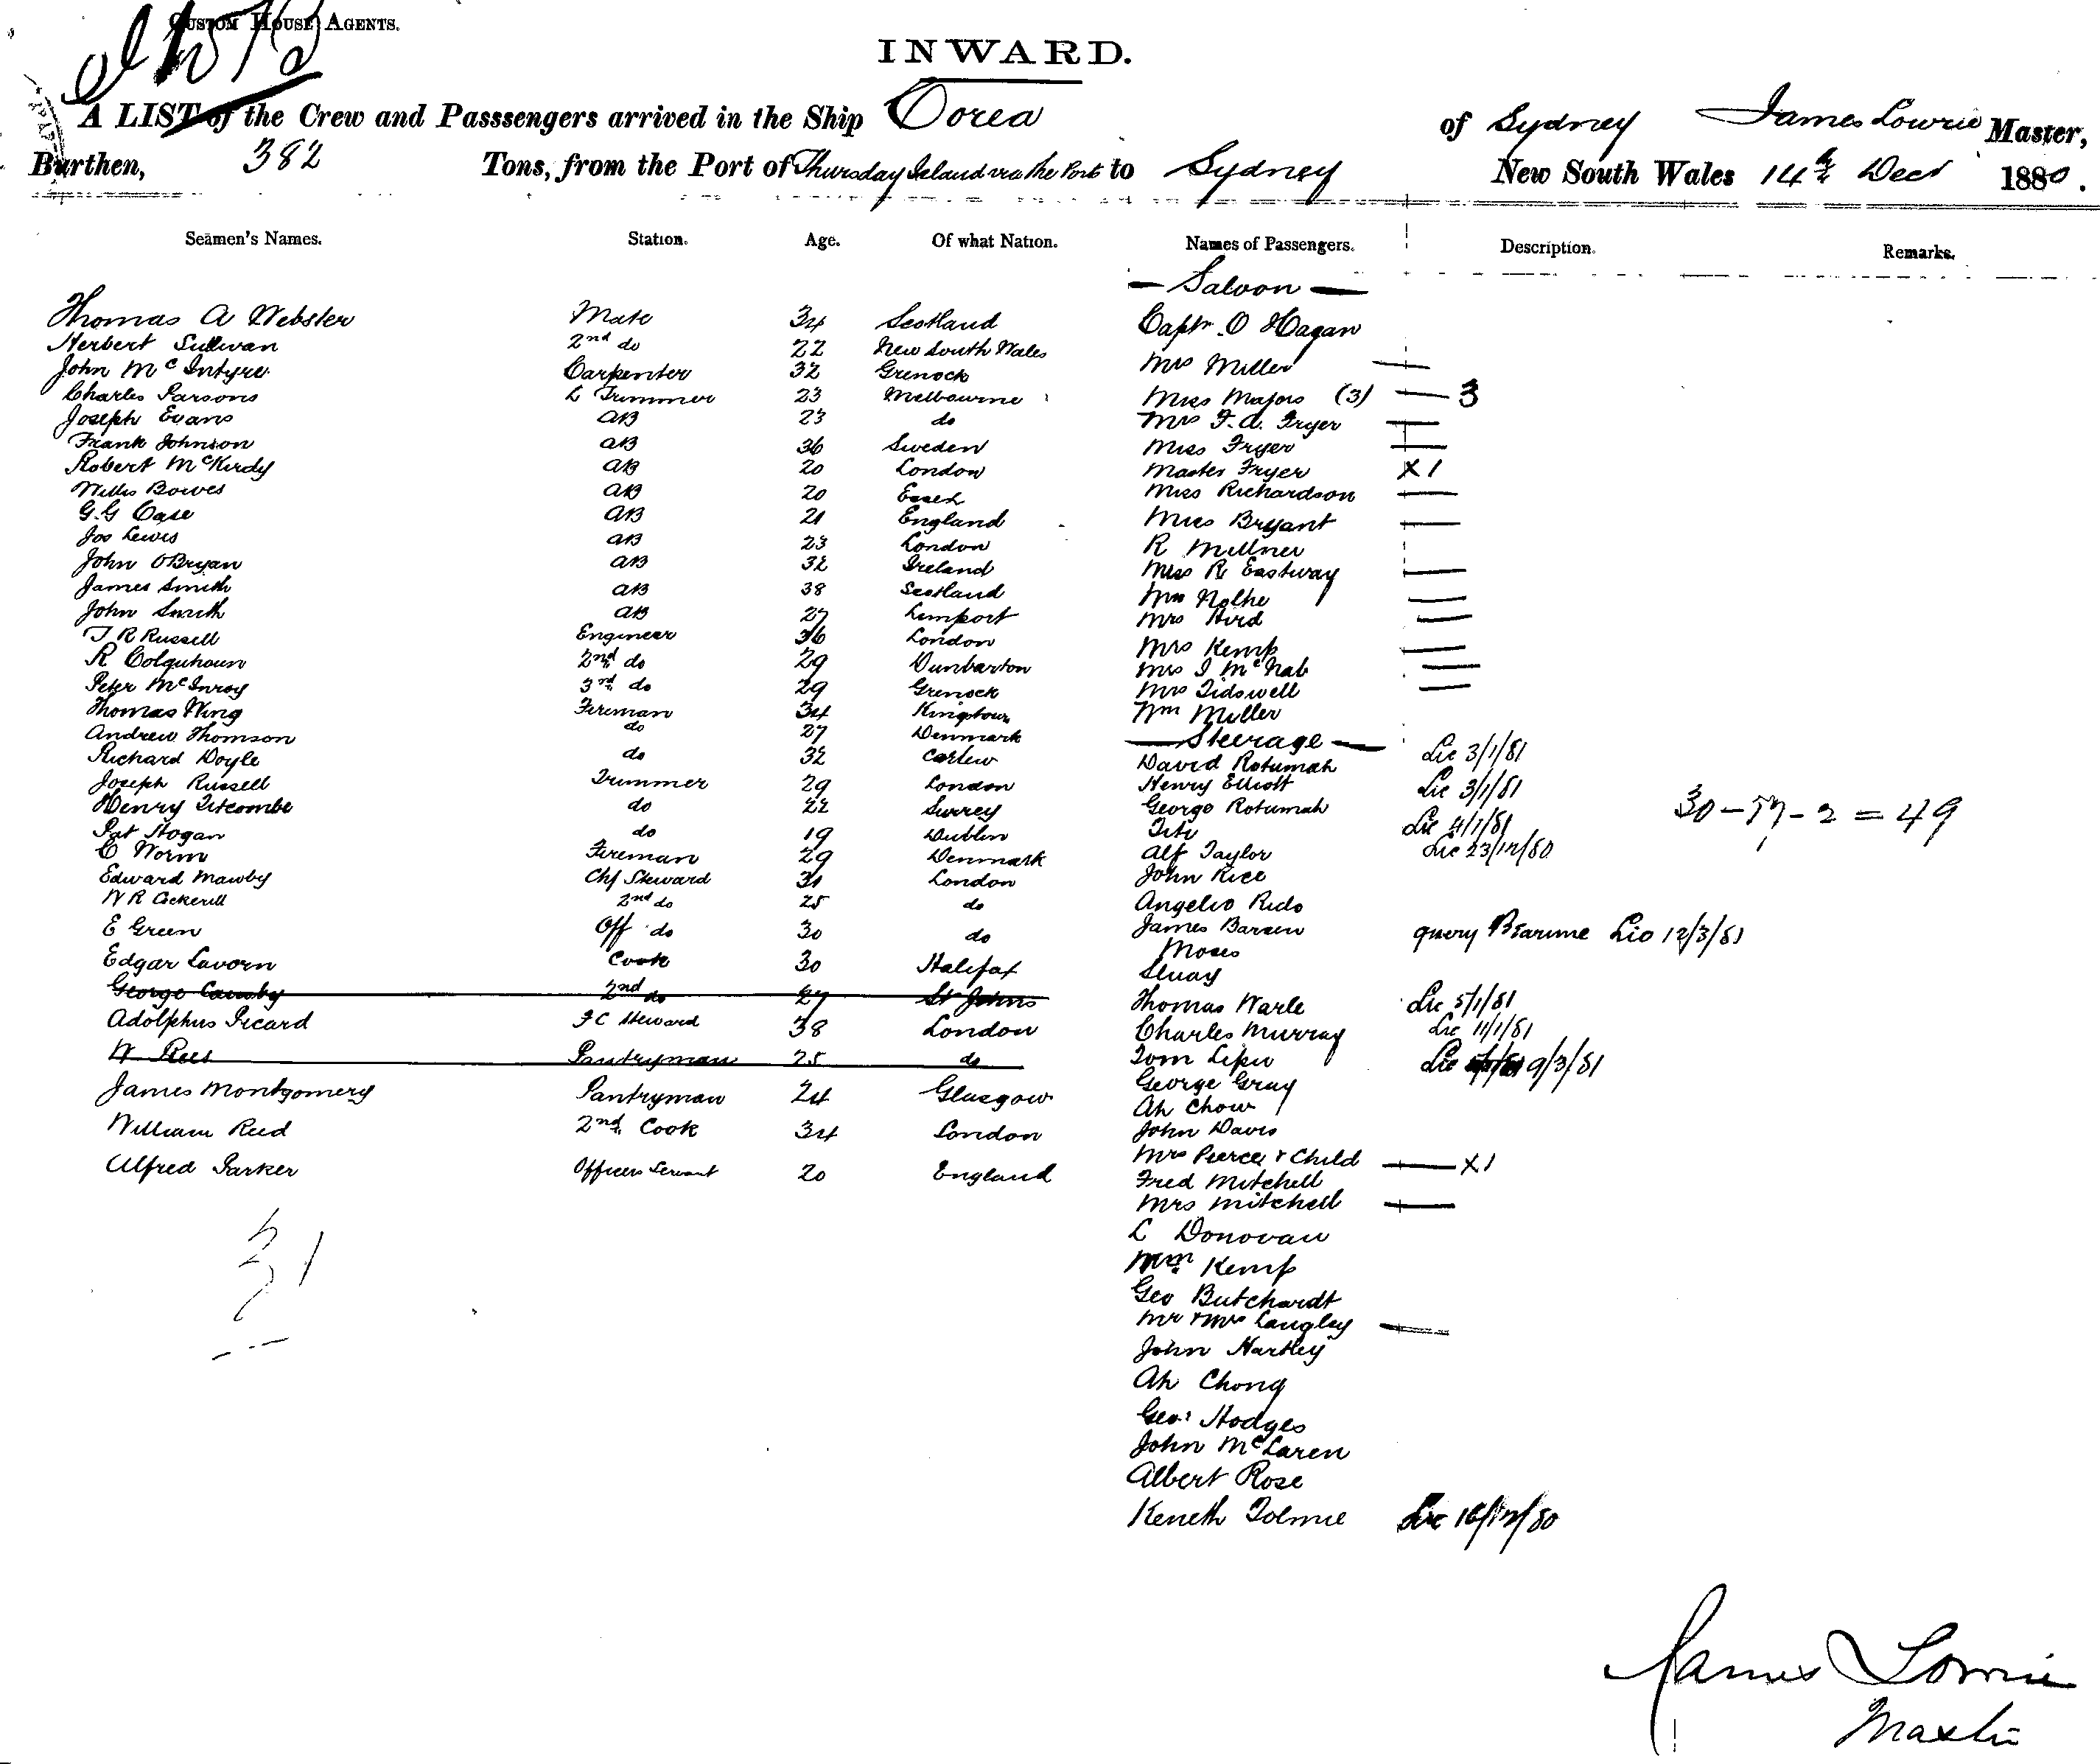 CUSTOM HOUSE AGENTS.
INWARD.
A LIST of the Crew and Passsengers arrived in the Ship Corea of Sydney James Lowrie Master,
Burthen, 382 Tons, from the Port of Thursday Island via the Ports to Sydney New South Wales 14th Decr 1880.
Seamen's Names. Station. Age. Of what Nation. Names of Passengers. Description. Remarks.
Thomas A Webster Mate 34 Scotland
Herbert Sullivan 2nd do 22 New South Wales
John McIntyre Carpenter 32 Grenock
Charles Parsons L Trimmer 23 Melbourne
Joseph Evans AB 23 do
Frank Johnson AB 36 Sweden
Robert McKirdy AB 20 London
Willis Bowes AB 20 Essex
G.G Case AB 21 England
Jos Lewis AB 23 London
John OBryan AB 32 Ireland
James Smith AB 38 Scotland
John Smith AB 27
T R Russell Engineer 36 London
R Colquhoun 2nd do 29 Dunbarton
Peter McInroy 3rd do 29 Grenock
Thomas Wing Fireman 34 Kingstown
Andrew Thomson do 27 Denmark
Richard Doyle do 32 Carlow
Joseph Russell Trimmer 29 London
Henry Titcombe do 22 Surrey
Pat Hogan do 19 Dublin
C Worm Fireman 29 Denmark
Edward Mawby Chf Steward 31 London
W R Cockerill 2nd do 25 do
E Green Off do 30 do
Edgar Lavorn Cook 30 Halifax
George Camby 2nd do 27 St Johns
Adolphus Picard FC Steward 38 London
W Rees Pantryman 25 do
James Montgomery Pantryman 24 Glasgow
William Reed 2nd Cook 34 London
Alfred Parker Officers Servant 20 England
31
Saloon
Captn O Hagan
Mrs Miller
Miss Majors (3) 3
Mrs F.A. Fryer
Miss Fryer
Master Fryer X1
Miss Richardson
Miss Bryant
R Millner
Miss R Eastway
Mrs Nolhe
Mrs Hird
Mrs Kemp
Mrs I McNab
Mrs Tidswell
Wm Miller
Steerage
David Rotumah Lic 3/1/81
Henry Elliott Lic 3/1/81
George Rotumah
Titi Lic 4/1/81
Alf Taylor Lic 23/12/80
John Rice
Angelio Rido
James Barsen query Lic 12/3/81
Moses
Sluay
Thomas Warle Lic 5/1/81
Charles Murray Lic 11/1/81
Tom Lipu Lic 9/3/81
George Gray
Ah Chow
John Davis
Mrs Pierce & Child X1
Fred Mitchell
Mrs Mitchell
L Donovan
Wm Kemp
Geo Butchardt
Mr & Mrs Langley
John Hartley
Ah Chong
Geo: Hodges
John McLaren
Albert Rose
Keneth Tolmie Lic 16/12/80
30 - 17 - 2 = 49
James Lowrie
Master